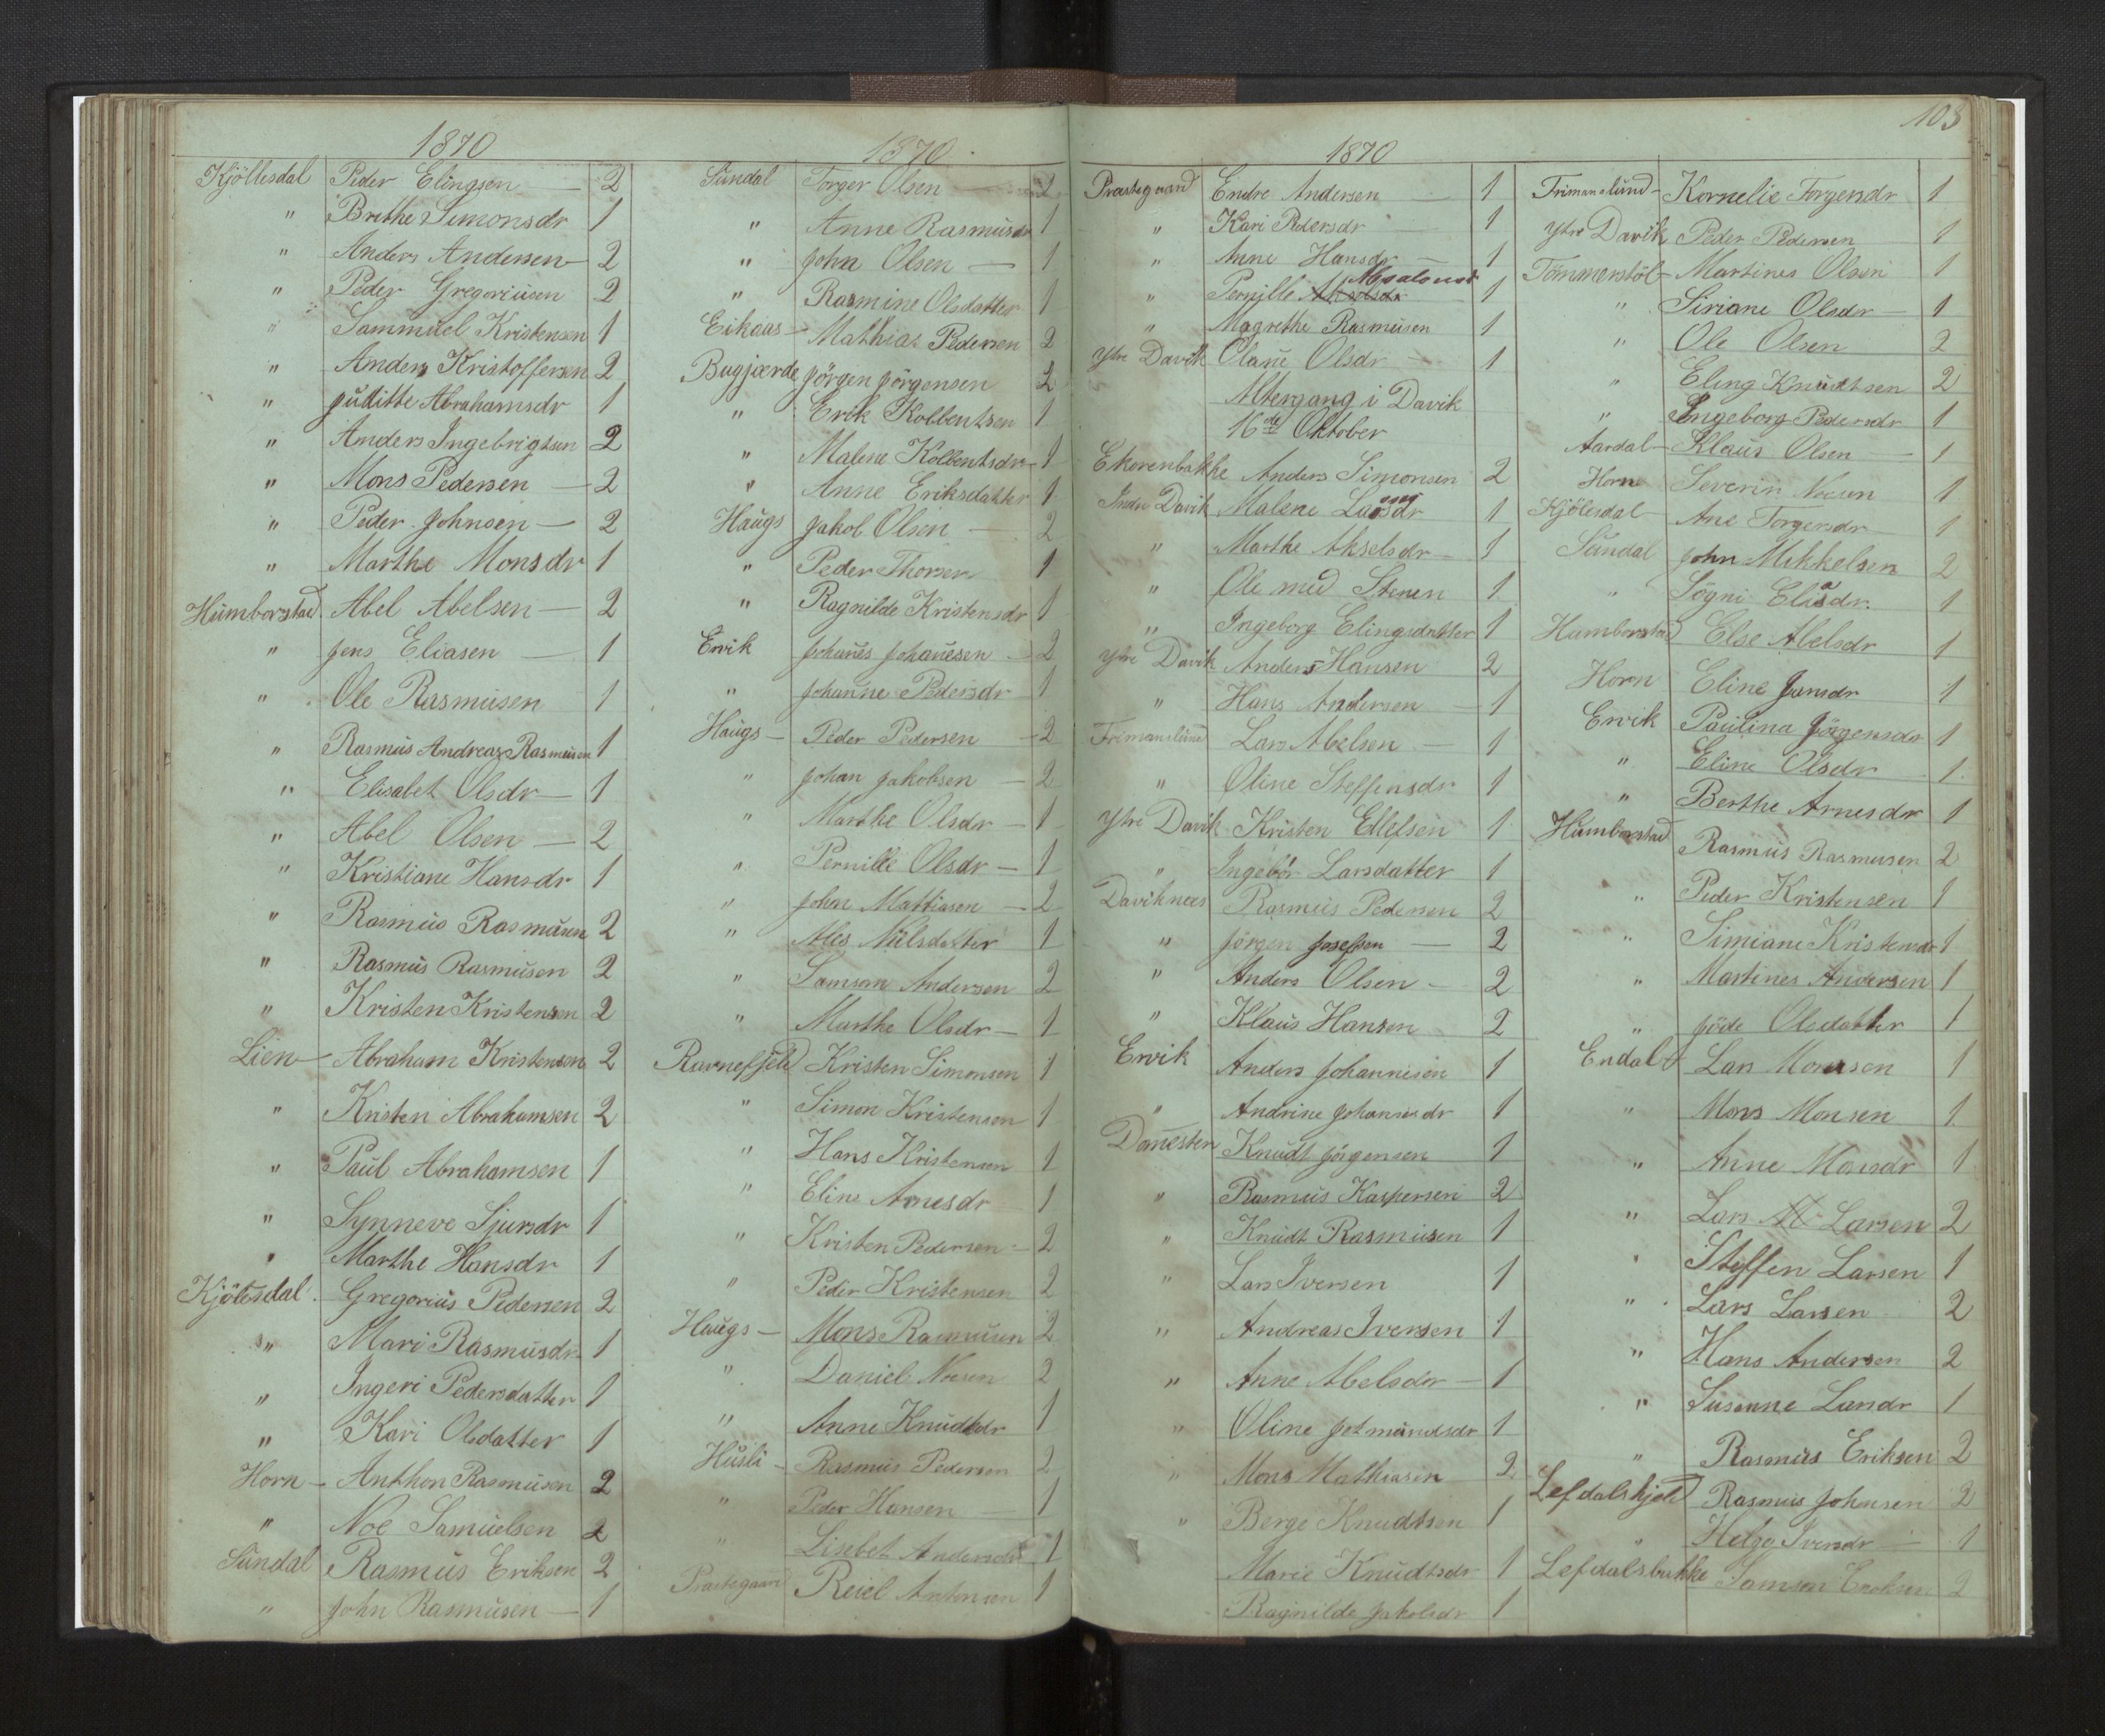 1870
Kjöllesdal Peder Elingsen — 2
" Brethe Simonsdr 1
" Anders Andersen — 2
" Peder Gregoriusen 2
" Sammuel Kristensen 1
" Anders Kristoffersen 2
" Juditte Abrahamsdr 1
" Anders Ingebrigtsen 2
" Mons Pedersen — 2
" Peder Johnsen — 2
" Marthe Monsdr 1
Humborstad Abel Abelsen — 2
" Jens Eliasen — 1
" Ole Rasmusen 1
" Rasmus Andreas Rasmusen 1
" Elisabet Olsdr — 1
" Abel Olsen — 2
" Kristiane Hansdr 1
" Rasmus Rasmusen 2
" Rasmus Rasmusen 2
" Kristen Kristensen 2
Lien — Abraham Kristensen 2
" Kristen Abrahamsen 2
" Paul Abrahamsen 1
" Synneve Sjursdr 1
" Marthe Hansdr 1
Kjölesdal Gregorius Pedersen 2
" Mari Rasmusdr 1
" Ingeri Pedersdatter 1
" Kari Olsdatter 1
Horn — Anthon Rasmusen 2
" Noe Samuelsen 2
Sundal Rasmus Eriksen 2
" John Rasmusen — 1
1870
Sundal Torger Olsen — 2
" Anne Rasmusdr 1
" John Olsen — 1
" Rasmine Olsdatter 1
Eikaas — Mathias Pedersen 2
Bugjærde Jörgen Jörgensen 2
" Erik Kolbentsen 1
" Malene Kolbentsdr — 1
" Anne Eriksdatter 1
Haugs Jakob Olsen — 2
" Peder Thorsen 1
" Ragnilde Kristensdr 1
Ervik Johanes Johanesen — 2
" Johanne Pedersdr — 1
Haugs — Peder Pedersen — 2
" Johan Jakobsen — 2
" Marthe Olsdr — 1
" Pernille Olsdr — 1
" Johan Mattiasen — 2
" Ales Nilsdatter 1
" Samson Andersen 2
" Marthe Olsdr — 1
Ravnefjeld Kristen Simonsen 1
" Simon Kristensen 1
" Hans Kristensen 1
" Eline Arnesdr 1
" Kristen Pedersen — 2
" Peder Kristensen 2
Haugs — Mons Rasmusen 2
" Daniel Noesen 2
" Anne Knudtsdr 1
Husli — Rasmus Pedersen 2
" Peder Hansen — 1
" Lisebet Andersdr 1
Prastegaard Reiel Antonsen 1
1870
Prastegaard Endre Andersen — 1
" Kari Pedersdr — 1
" Anne Hansdr — 1
" Pernille Absalonsdr 1
" Magrethe Rasmusen 1
Ytre Davik Olane Olsdr — 1
Altergang i Davik
16de Oktober
Ekorenbakke Anders Simonsen 2
Indre Davik Malene Larsdr 1
" Marthe Akselsdr — 1
" Ole med Stenen 1
" Ingeborg Elingsdatter 1
Ytre Davik Anders Hansen 2
" Hans Andersen — 1
Frimanslund Lars Abelsen — 1
" Oline Steffensdr 1
Ytre Davik Kristen Ellefsen 1
" Ingebór Larsdatter 1
Daviknæs Rasmus Pedersen 2
" Jörgen Josefsen — 2
" Anders Olsen — 2
" Klaus Hansen 2
Ervik Anders Johannesen 1
" Andrine Johanesdr 1
Domesten Knudt Jörgensen 1
" Rasmus Kaspersen 2
" Knudt Rasmusen 1
" Lars Iversen 1
" Andreas Iversen 1
" Anne Abelsdr — 1
" Oline Jetmundsdr 1
" Mons Mathiasen 2
" Berge Knudtsen 1
Marie Knudtsdr 1
Ragnilde Jakobsdr 1
103
Frimanslund — Kornelie Torgersdr 1
Ytre Davik Peder Pedersen 1
Tömmerstöl — Martines Olsen 1
" Siriane Olsdr — 1
" Ole Olsen 2
" Eling Knudtsen 2
" Ingeborg Pedersdr 1
Aardal — Klaus Olsen — 1
Horn Severin Noesen 1
Kjölesdal — Ane Torgersdr 1
Sundal John Mikkelsen 2
" Sögni Eliasdr. 1
Humborstad Else Abelsdr 1
Horn Eline Jensdr 1
Ervik Paulina Jörgensdr 1
" Eline Olsdr 1
" Berthe Arnesdr 1
Humborstad Rasmus Rasmusen 2
" Peder Kristensen 1
" Simiane Kristensdr 1
" Martines Andersen 1
" Jöde Olsdatter 1
Endal Lars Monsen 1
" Mons Monsen 1
" Anne Monsdr 1
" Lars A. Larsen 2
" Steffen Larsen 1
" Lars Larsen 2
" Hans Andersen 2
" Susanne Larsdr 1
" Rasmus Eriksen 2
Lefdalshjeld Rasmus Johnsen 2
" Helge Iversdr — 1
Lefdalsbakke Samson Enoksen 2